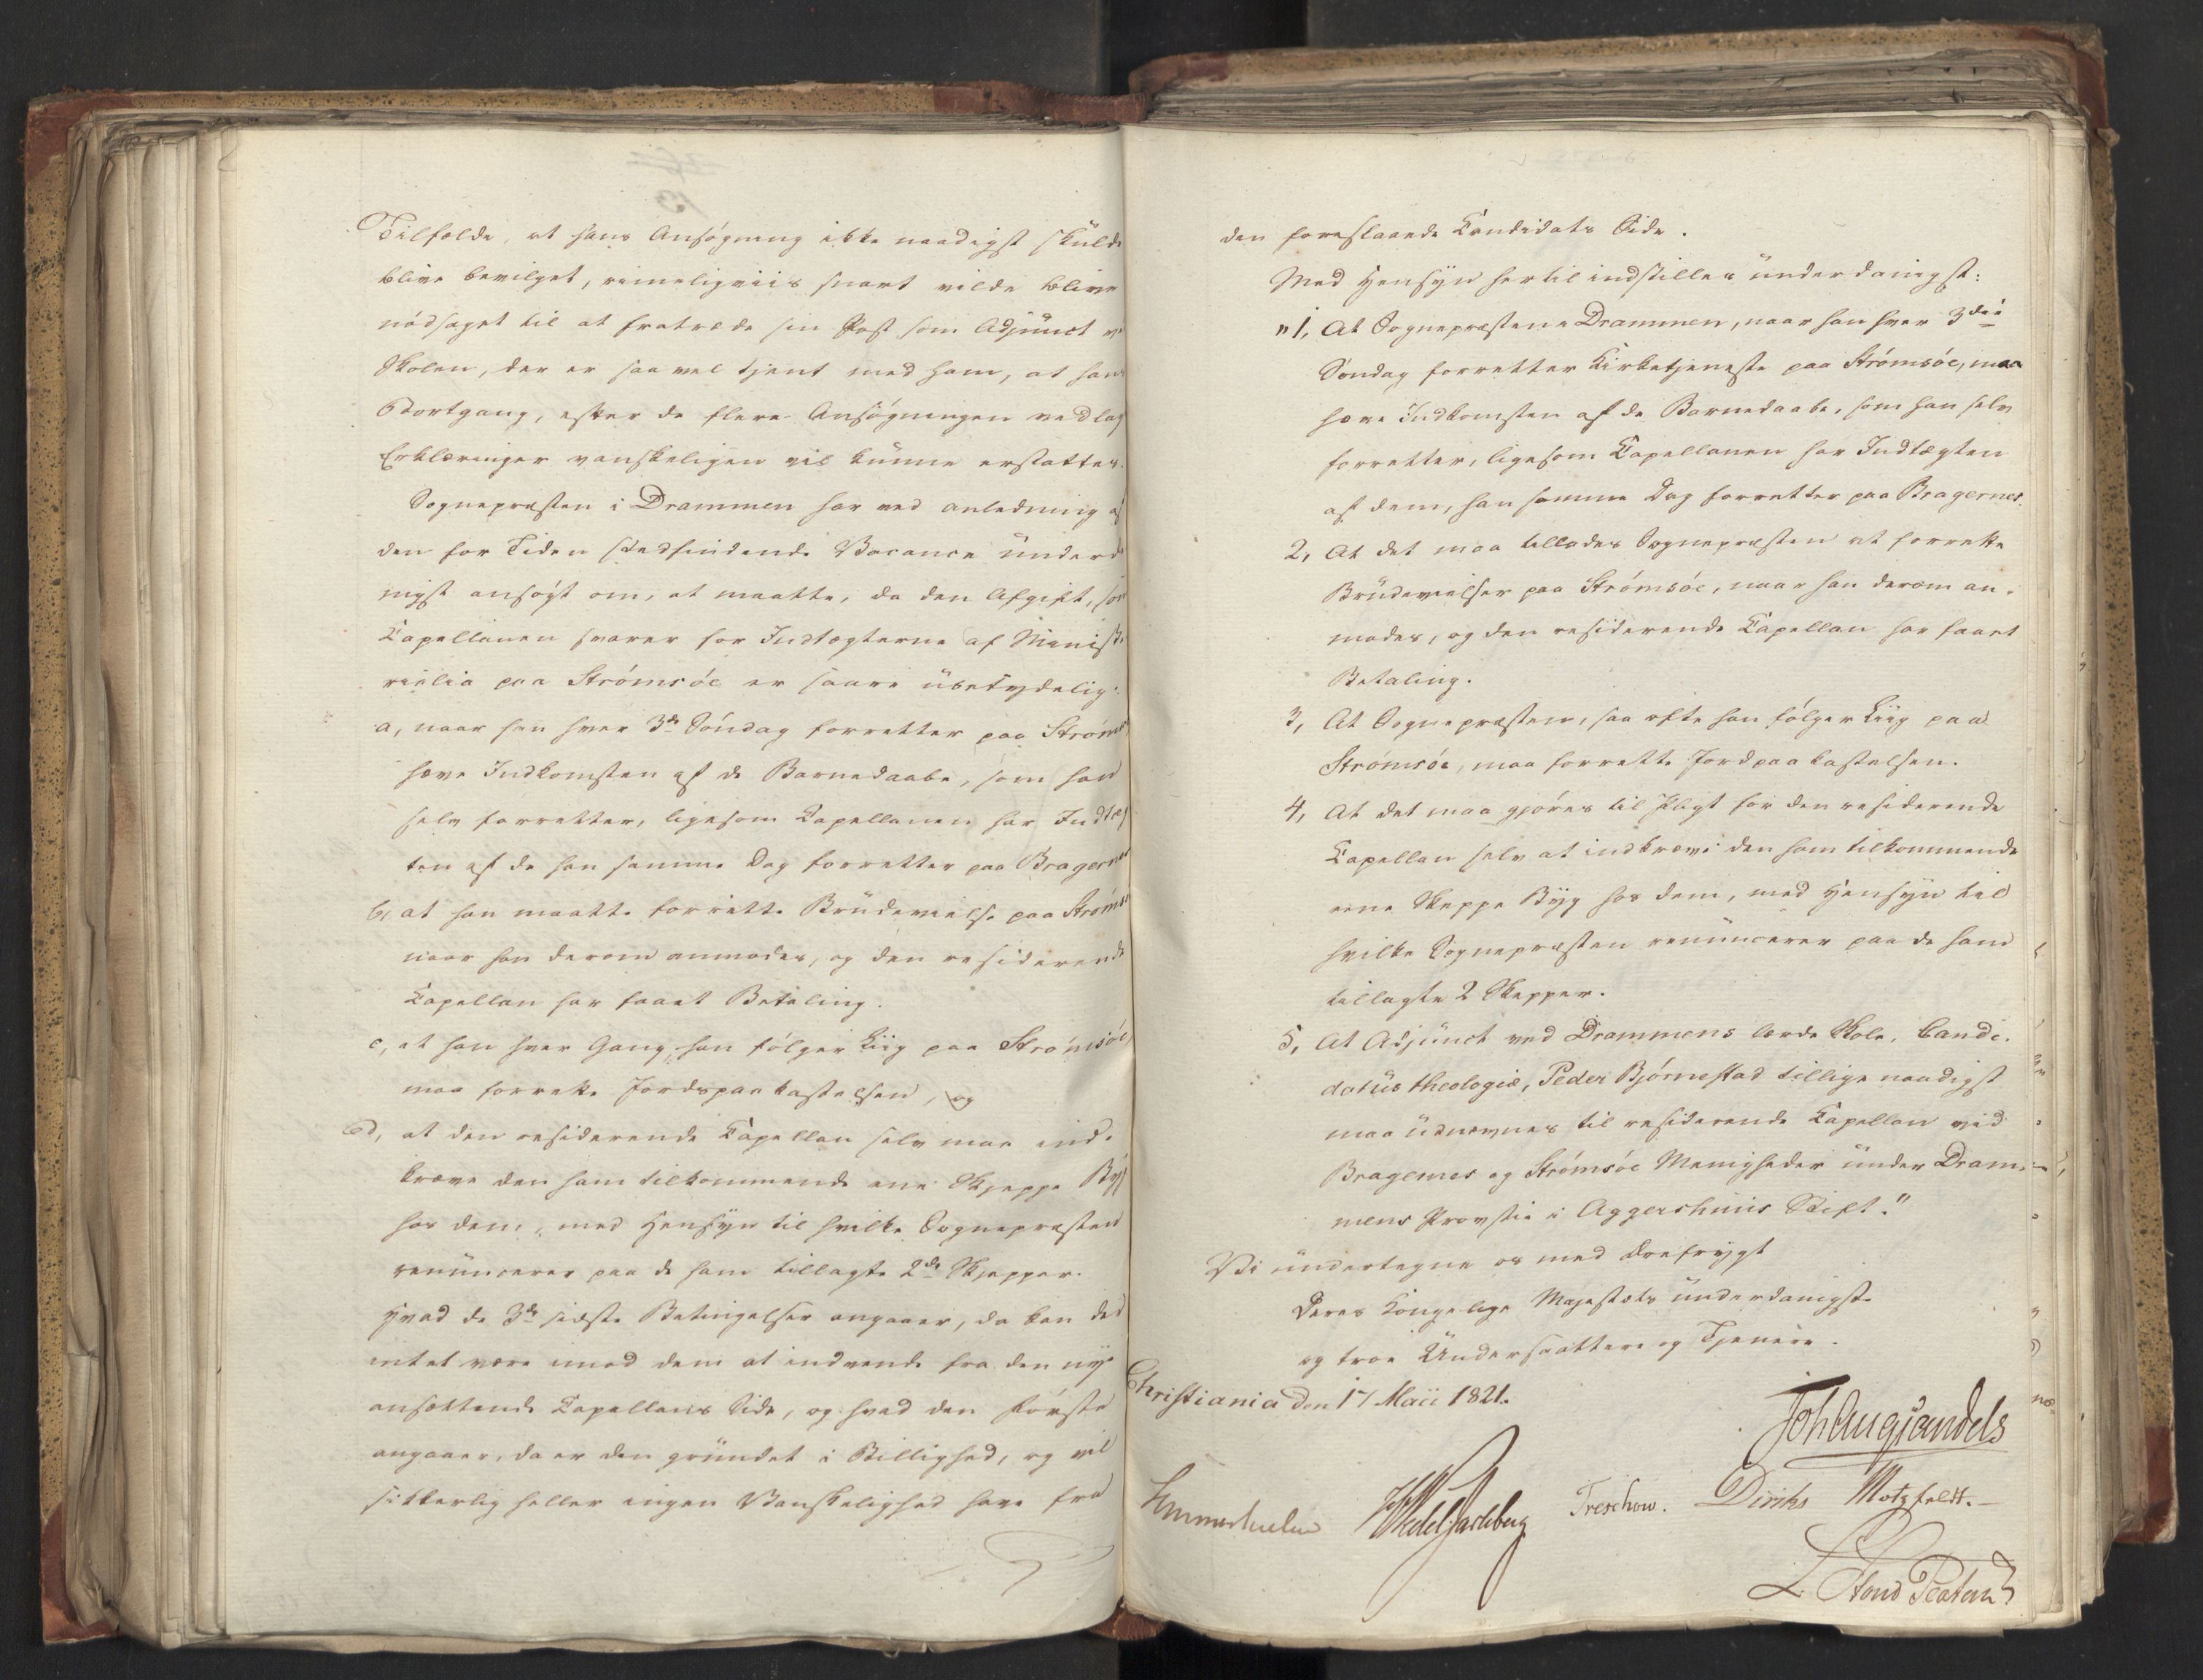 Tilfælde, at hans Ansøgning ikke naadigst skulde
blive bevilget, rimeligviis snart vilde blive
nødsaget til at fratræde sin Post som Adjunct v
Skolen, der er saa vel tjent med ham, at hans
Bortgang, efter de flere Ansøgningen vedlag
Erklæringer vanskeligen vil kunne erstattes.
Sognepræsten i Drammen har ved anledning af
den for Tiden stedfindende Vacance underd
nigst ansøgt om, at maatte, da den Afgift, som
Capellanen svarer for Indtægterne af Ministe
rialia paa Strömsöe er saare übetydelig:
a, naar han hver 3de Søndag forretter paa Ströms
hæve Indkomsten af de Barnedaabe, som han
selv forretter, ligesom Capellanen har Indtæg
ten af de han samme Dag forretter paa Bragernes
b, at han maatte forrette Brüdevielse paa Ströms
naar han derom anmodes, og den residerende
Capellan har faaet Betaling.
c, at han hver Gang han følger Liig paa Strömsöe,
maa forrette Jordspaakastelsen, og
d, at den residerende Capellan selv maa ind-
kræve den ham tilkommende ene Skjeppe Byg
hos dem, med Hensyn til hvilke Sognepræsten
renüncerer paa de ham tillagte 2de Skjepper.
Hvad de 3de sidste Betingelser angaaer, da kan det
intet være imod dem at indvende fra den nye
ansættende Capellans Side, og hvad den første
angaaer, da er den gründet i Billighed, og vil
sikkerlig heller ingen Vanskelighed have fra
den foreslaaede Candidats Side.
Med Hensyn hertil indstilles ünderdanigst:
"1, At Sognepræsten i Drammen, naar han hver 3die
Søndag forretter Kirketjeneste paa Strömsöe, maa
hæve Indkomsten af de Barnedaabe, som han selv
forretter, ligesom Capellanen har Indtægten
af dem, han samme Dag forretter paa Bragernes.
2, At det maa tillades Sognepræsten at forrette
Brüdevielser paa Strömsöe, naar han derom an-
modes, og den residerende Capellan har faaet
Betaling.
3, At Sognepræsten, saa ofte han følger Liig paa
Strömsöe, maa forrette Jordpaakastelsen.
4, At det maa gjøres til Pligt for den residerende
Capellan selv at indkræve den ham tilkommende
eene Skeppe Byg hos dem, med Hensyn til
hvilke Sognepræsten renüncerer paa de ham
tillagte 2 Skepper.
5, At Adjünct ved Drammens lærde Skole, Candi-
datüs theologiæ, Peder Björnestad tillige naadigst
maa üdnævnes til residerende Capellan ved
Bragernes og Strömsöe Menigheder ünder Dram-
mens Provstie i Aggershuus Stift."
Vi ündertegne os med Ærefrygt
Deres Kongelige Majestæts ünderdanigste
og troe Ündersaattere og Tjenere.
Christiania den 17 Maii 1821.
Joh Aug Sandels
Sommerhielm HWedel Jarlsberg Treschow. Diriks Motzfeldt.
L Stoud Platou